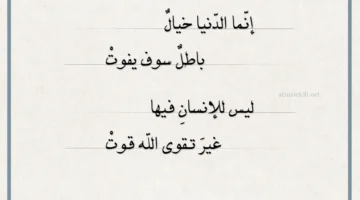 إنّما الدّنيا خيالٌ
باطلٌ سوف يفوتْ
ليس للإنسانِ فيها
غيرَ تقوى اللّه قوتْ